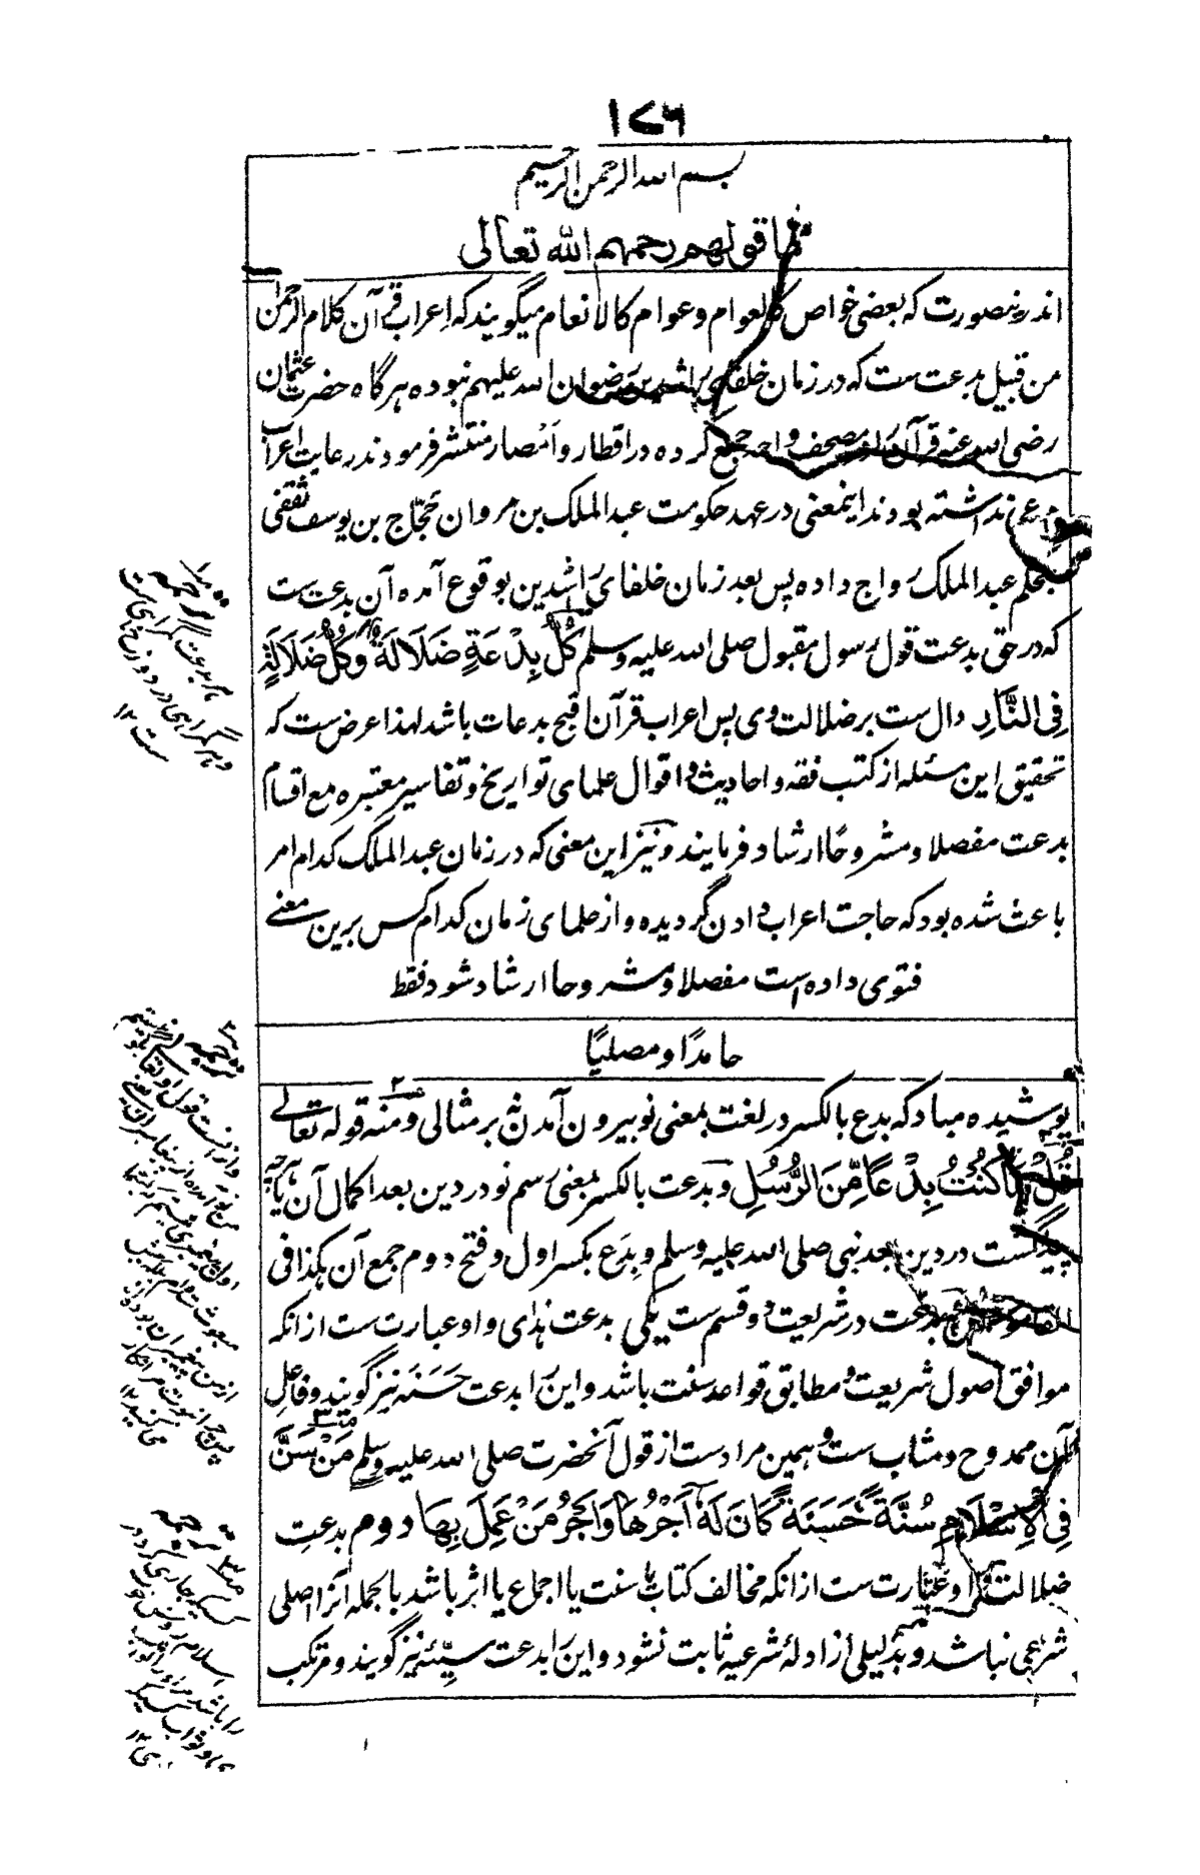 ۱۷۶
بسم الله الرحمن الرحیم
ما قولهم رحمهم الله تعالی
اندرینصورت که بعضی خواص کالعوام و عوام کالانعام میگویند که اعراب قرآن کلام الرحمن
من قبیل بدعت ست که در زمان خلفای راشدین رضوان الله علیهم نبوده هرگاه حضرت عثمان
رضی الله عنه قرآن را در مصحف واحد جمع کرده در اقطار و اَمْصار منتشر فرمودند رعایت اعراب
مرعی نداشته بودند اینمعنی در عهد حکومت عبدالملک بن مروان حَجّاج بن یوسف ثقفی
بحکم عبدالملک رواج داده پس بعد زمان خلفای راشدین بوقوع آمده آن بدعت ست
که در حق بدعت قول رسول مقبول صلی الله علیه وسلم كُلُّ بِدْعَةٍ ضَلَالَةٌ وَكُلُّ ضَلَالَةٍ
فِي النَّارِ دال ست بر ضلالت وی پس اعراب قرآن اقبح بدعات باشد لهذا عرض ست که
تحقیق این مسئله از کتب فقه و احادیث و اقوال علمای تواریخ و تفاسیر معتبره مع اقسام
بدعت مفصلا و مشروحًا ارشاد فرمایند و نیز این معنی که در زمان عبدالملک کدام امر
باعث شده بود که حاجت اعراب دادن گردیده و از علمای زمان کدام کس برین معنے
فتوی داده است مفصلا و مشروحا ارشاد شود فقط
حامدًا و مصلیًا
پوشیده مباد که بدع بالکسر در لغت بمعنی نو بیرون آمدن نه بر مثالی و منه قوله تعالے
قُلْ مَا كُنْتُ بِدْعًا مِّنَ الرُّسُلِ و بدعت بالکسر بمعنی رسم نو در دین بعد اکمال آن یا هرچه
پیداست در دین بعد نبی صلی الله علیه وسلم و بِدَع بکسر اول و فتح دوم جمع آن هکذا فی
القاموس بدعت در شریعت دو قسم ست یکی بدعت هدای و او عبارت ست از آنکه
موافق اصول شریعت و مطابق قواعد سنت باشد و این را بدعت حَسَنَه نیز گویند و فاعلِ
آن ممدوح و مثاب ست و همین مراد ست از قول آنحضرت صلی الله علیه وسلم مَنْ سَنَّ
فِي الْإِسْلَامِ سُنَّةً حَسَنَةً كَانَ لَهٗ أَجْرُهَا وَأَجْرُ مَنْ عَمِلَ بِهَا دوم بدعتِ
ضلالت و او عبارت ست از آنکه مخالف کتاب یا سنت یا اجماع یا اثر باشد بالجمله آنرا اصلی
شرعی نباشد و بدلیلی از ادلۂ شرعیه ثابت نشود و این را بدعت سیّئه نیز گویند و مرتکب
ترجمه
ترجمه
ترجمه